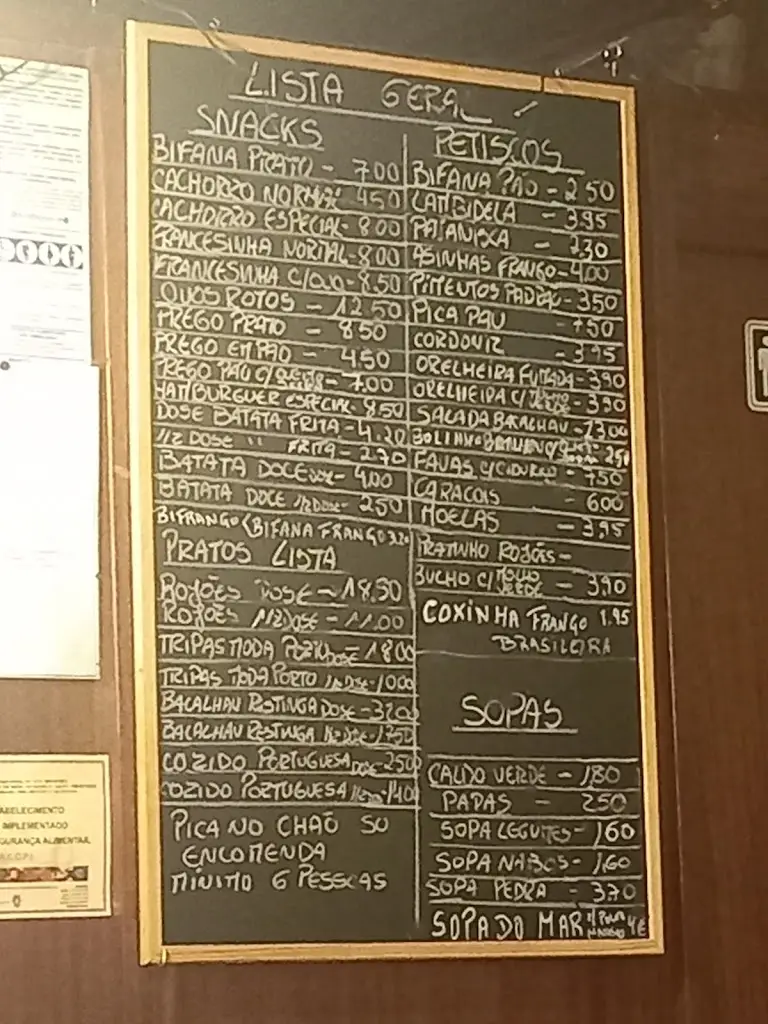 LISTA GERAL
SNACKS
BIFANA PRATO - 7.00
CACHORRO NORMAL 450
CACHORRO ESPECIAL - 800
FRANCESINHA NORMAL - 8.00
FRANCESINHA C/OVO - 8.50
OVOS ROTOS - 12.50
PREGO PRATO - 850
PREGO EM PÃO - 450
PREGO PÃO C/ - 7.00
HAMBURGUER ESPECIAL - 8.50
DOSE BATATA FRITA - 4.20
1/2 DOSE " FRITA - 2.70
BATATA DOCE DOSE - 4.00
BATATA DOCE 1/2 DOSE - 250
BIFRANGO (BIFANA FRANGO 3.20
PRATOS LISTA
ROJÕES DOSE - 18.50
ROJÕES 1/2 DOSE - 11.00
TRIPAS MODA PORTO DOSE - 1800
TRIPAS MODA PORTO 1/2 DOSE - 1000
BACALHAU RESTINGA DOSE - 3200
BACALHAU RESTINGA 1/2 DOSE - 1750
COZIDO PORTUGUESA DOSE - 2500
COZIDO PORTUGUESA 1/2 DOSE - 1400
PICA NO CHÃO SO
ENCOMENDA
MÍNIMO 6 PESSOAS
PETISCOS
BIFANA PÃO - 2 50
LAMBIDELA - 3.95
PATANISCA - 2.30
ASINHAS FRANGO - 4.00
PIMENTOS PADRÃO - 350
PICA PAU - 750
CORDONIZ - 3.95
ORELHEIRA FUMADA - 390
ORELHEIRA C/ MOLHO VERDE - 390
SALADA BACALHAU - 1300
BOLINHO BACALHAU C/ 250
FAVAS C/CHOURIÇO - 750
CARACOIS - 600
MOELAS - 3.95
PRATINHO ROJÕES -
BUCHO C/ MOLHO VERDE - 390
COXINHA FRANGO 1.95
BRASILEIRA
SOPAS
CALDO VERDE - 1,80
PAPAS - 250
SOPA LEGUMES - 1,60
SOPA NABOS - 1,60
SOPA PEDRA - 3.70
SOPA DO MAR 4€
ABELECIMENTO
IMPLEMENTADO
GURANÇA ALIMENTAR